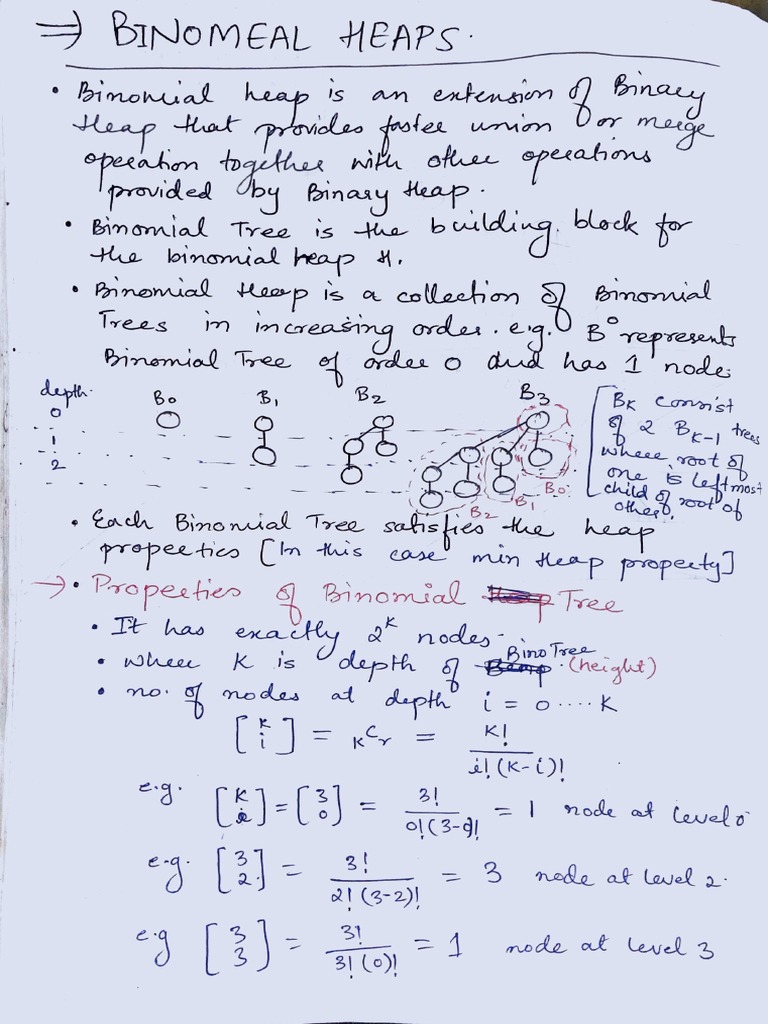 ⇒ BINOMEAL HEAPS.
• Binomial heap is an extension of Binary
Heap that provides faster union or merge
operation together with other operations
provided by Binary Heap.
• Binomial Tree is the building block for
the binomial heap H.
• Binomial Heap is a collection of Binomial
Trees in increasing order. e.g. B⁰ represents
Binomial Tree of order 0 and has 1 node.
depth. B0 B1 B2 B3
0
1
2
B0
B1
B2
BK consist
of 2 BK-1 trees
where root of
one is leftmost
child of root of
other.
• Each Binomial Tree satisfies the heap
properties [In this case min Heap property]
→ • Properties of Binomial Tree
• It has exactly 2^k nodes.
• where K is depth of BinoTree. (height)
• no. of nodes at depth i = 0 ....K
[k i] = KCr = K! / i!(K-i)!
e.g. [K i] = [3 0] = 3! / 0!(3-0)! = 1 node at level 0
e.g. [3 2] = 3! / 2!(3-2)! = 3 node at level 2.
e.g [3 3] = 3! / 3!(0)! = 1 node at level 3